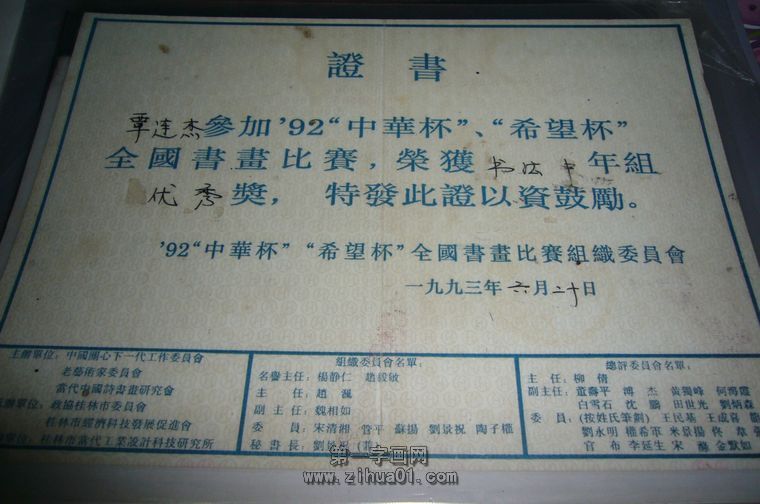 證書
覃连杰參加'92“中華杯”、“希望杯”
全國書畫比賽，榮獲书法中年組
优秀獎， 特發此證以資鼓勵。
'92“中華杯”“希望杯”全國書畫比賽組織委員會
一九九三年六月二十日
主辦單位：中國關心下一代工作委員會
老藝術家委員會
當代中國詩書畫研究會
辦單位：政協桂林市委員會
桂林市經濟科技發展促進會
單位：桂林市當代工業設計科技研究所
組織委員會名單：
名譽主任：楊静仁 趙毅敏
主 任：趙
副主任：魏相如
委 員：宋清湘 管平 蘇揚 劉景祝 陶子權
秘書長：劉景祝（兼）
總評委員會名單：
主 任：柳倩
副主任：董壽平 溥杰 黄獨峰 何海霞
白雪石 沈鵬 田世光 劉炳森
委 員：（按姓氏筆劃）王民基 王成喜
劉永明 權希軍 米景揚 佟韋
官布 李延生 宋 金默如
第一字画网
www.zihua01.com